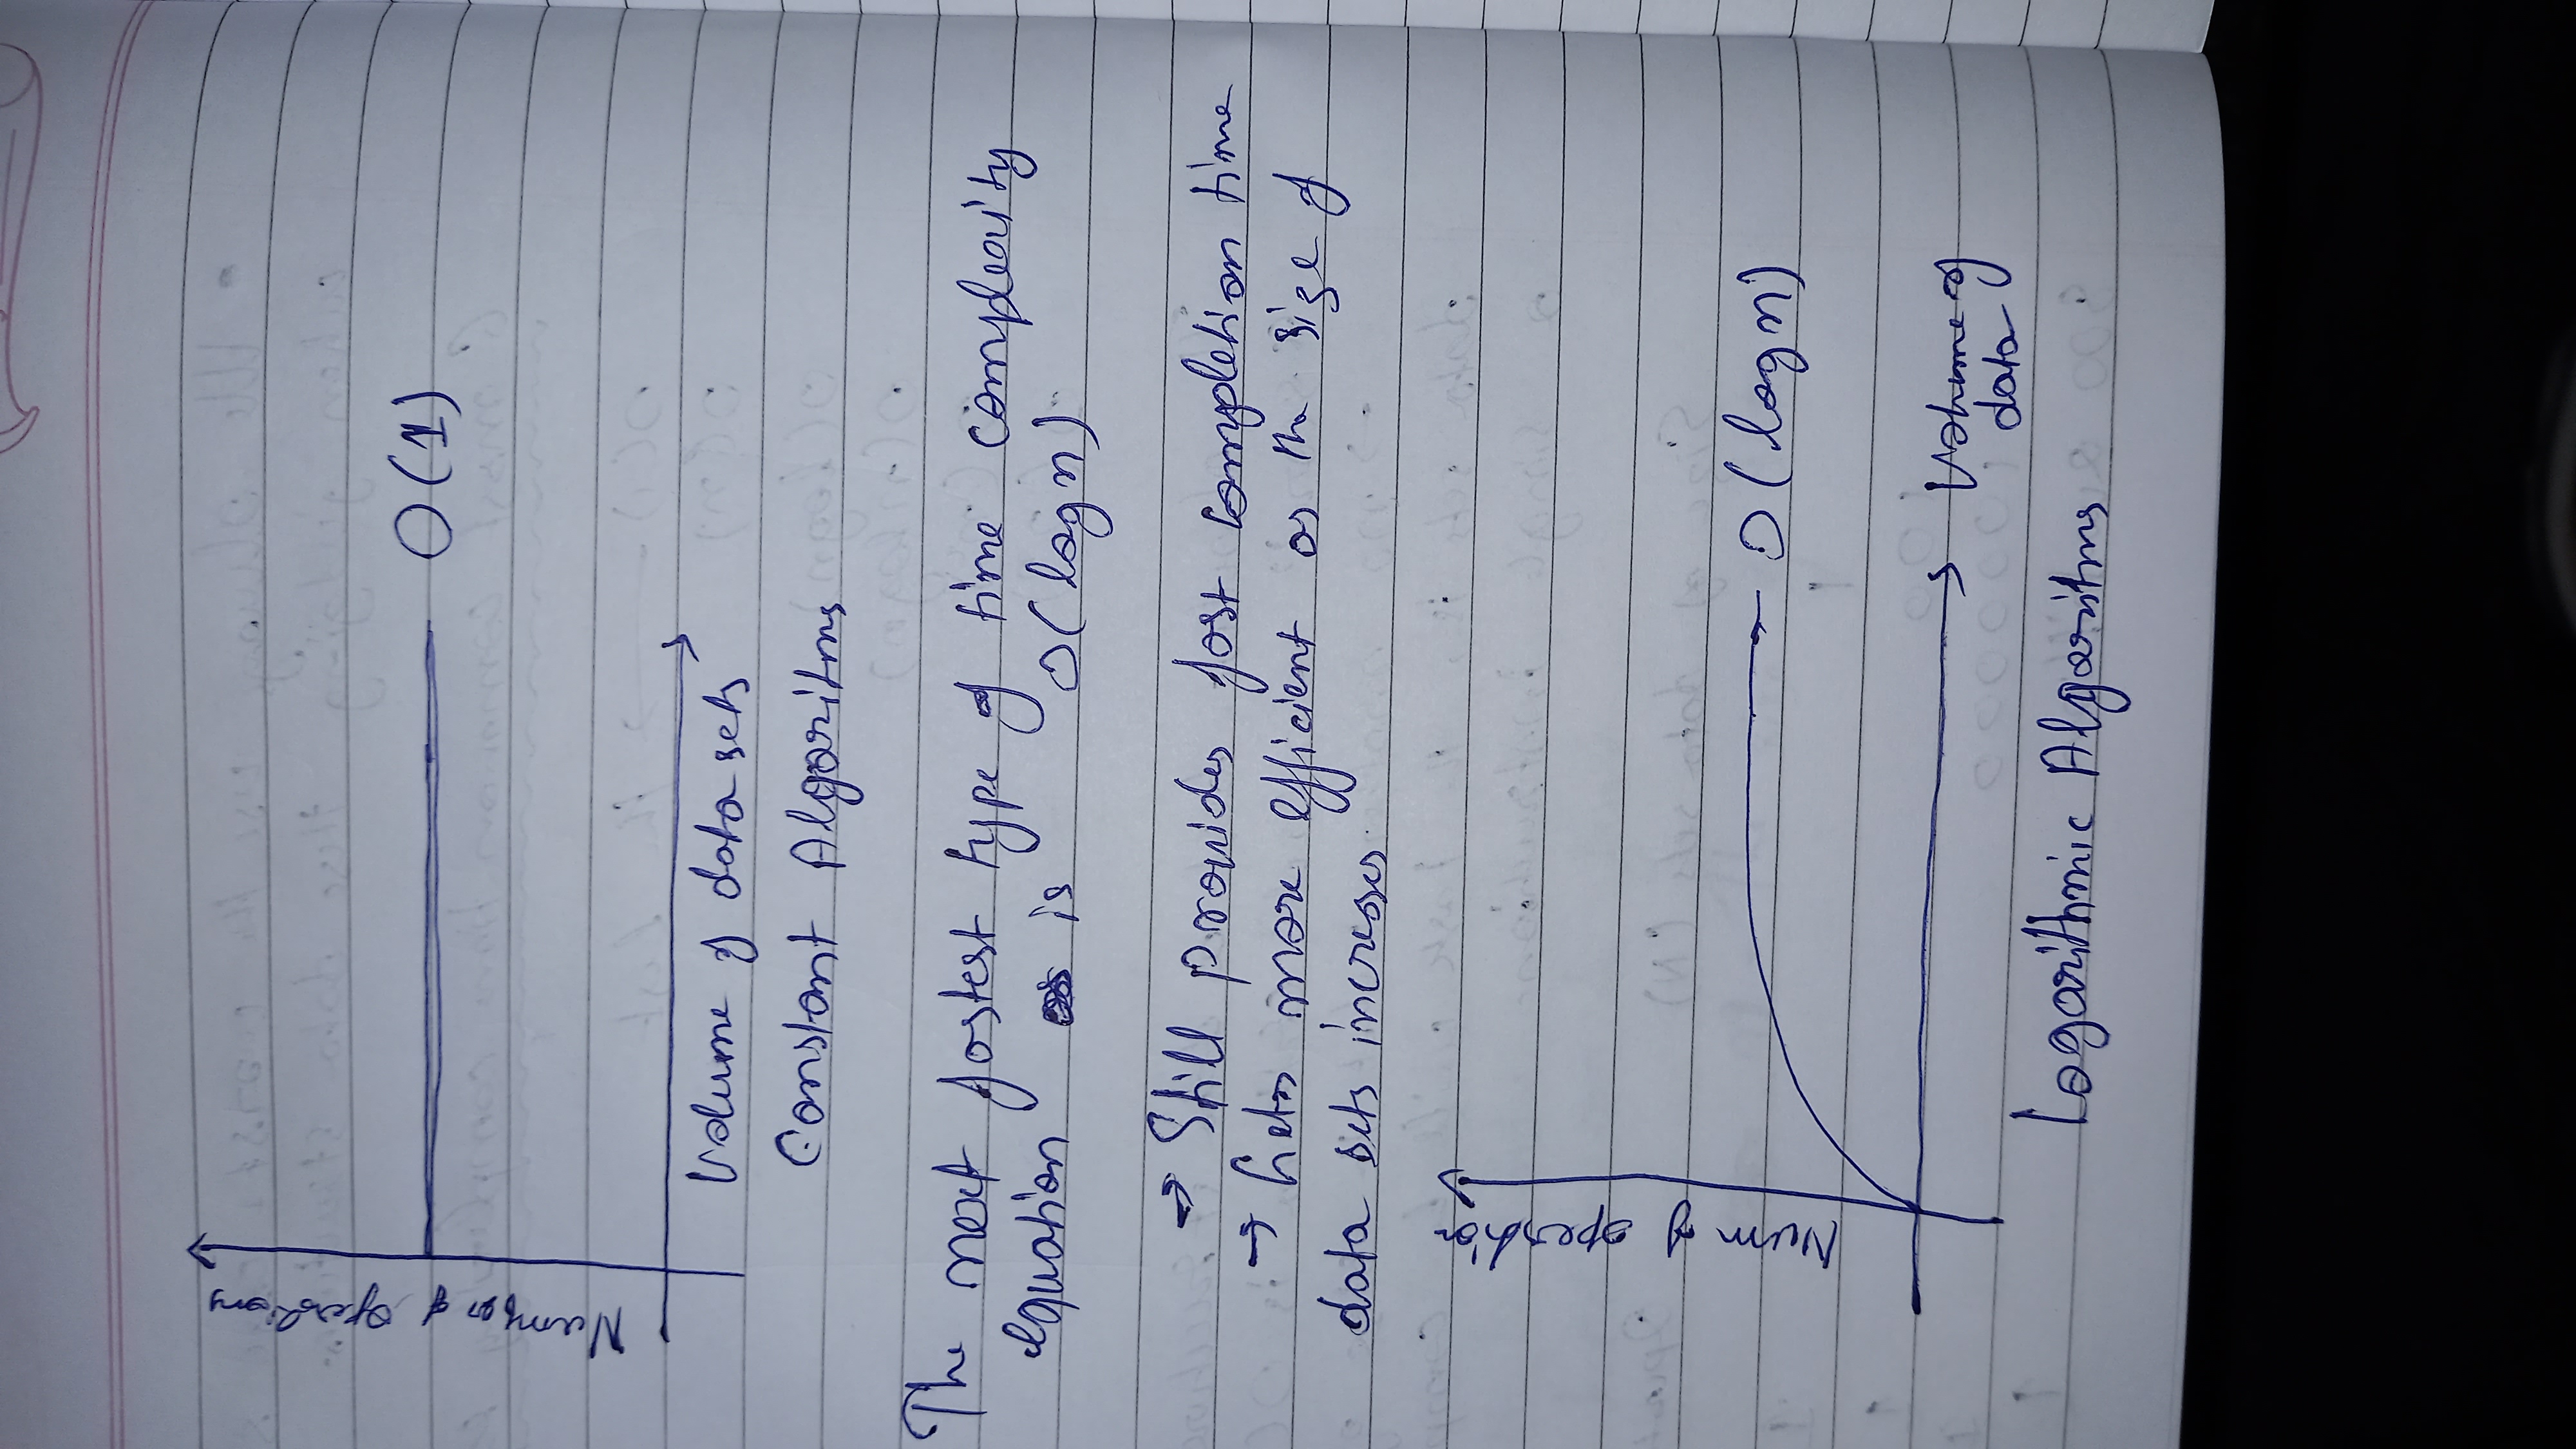 O(1)
Volume of data sets
Constant Algoritms
The next fastest type of time complexity
equation is O(log n)
→ Still provides fast completion time
→ Gets more efficient as the size of
data sets increses.
Num of operation
O(log n)
Volume of
data
Logarithmic Algoritms